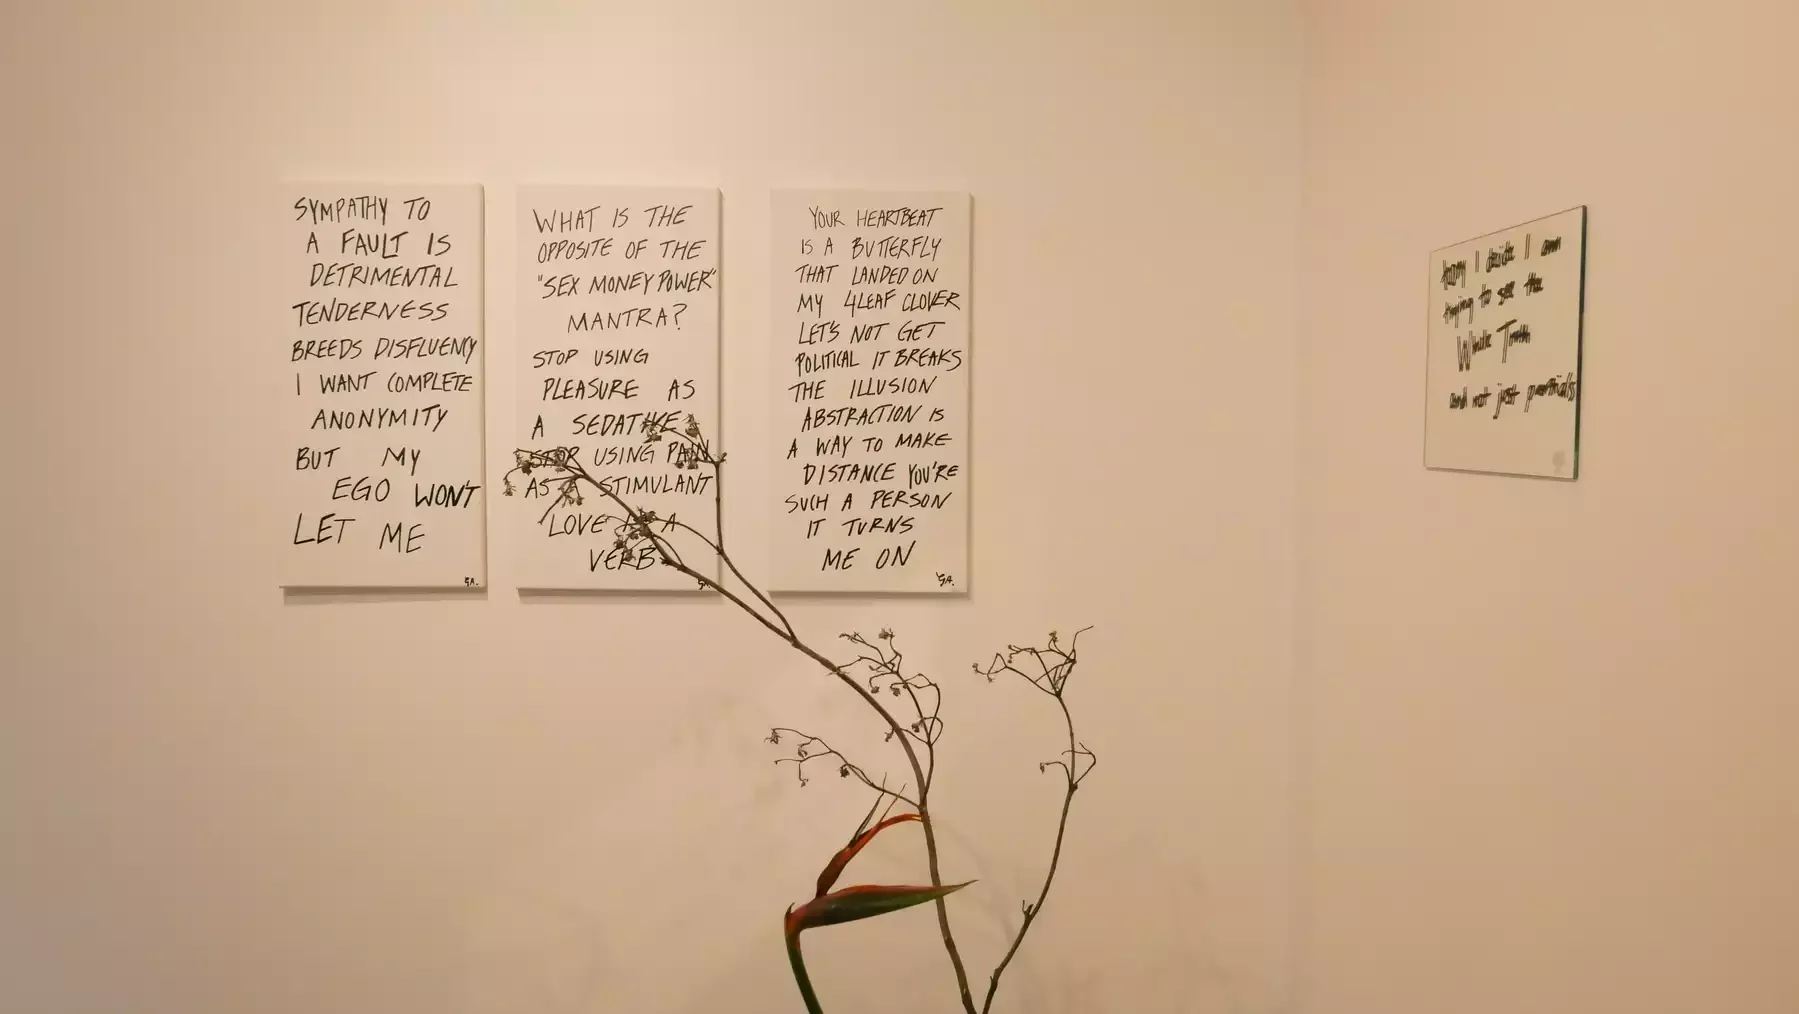 SYMPATHY TO
A FAULT IS
DETRIMENTAL
TENDERNESS
BREEDS DISFLUENCY
I WANT COMPLETE
ANONYMITY
BUT MY
EGO WON'T
LET ME
GA.
WHAT IS THE
OPPOSITE OF THE
"SEX MONEY POWER"
MANTRA?
STOP USING
PLEASURE AS
A SEDATIVE
STOP USING PAIN
AS A STIMULANT
LOVE IS A
VERB
GA.
YOUR HEARTBEAT
IS A BUTTERFLY
THAT LANDED ON
MY 4LEAF CLOVER
LET'S NOT GET
POLITICAL IT BREAKS
THE ILLUSION
ABSTRACTION IS
A WAY TO MAKE
DISTANCE YOU'RE
SUCH A PERSON
IT TURNS
ME ON
GA.
today I decide I am
trying to see the
Whole Truth
and not just partials